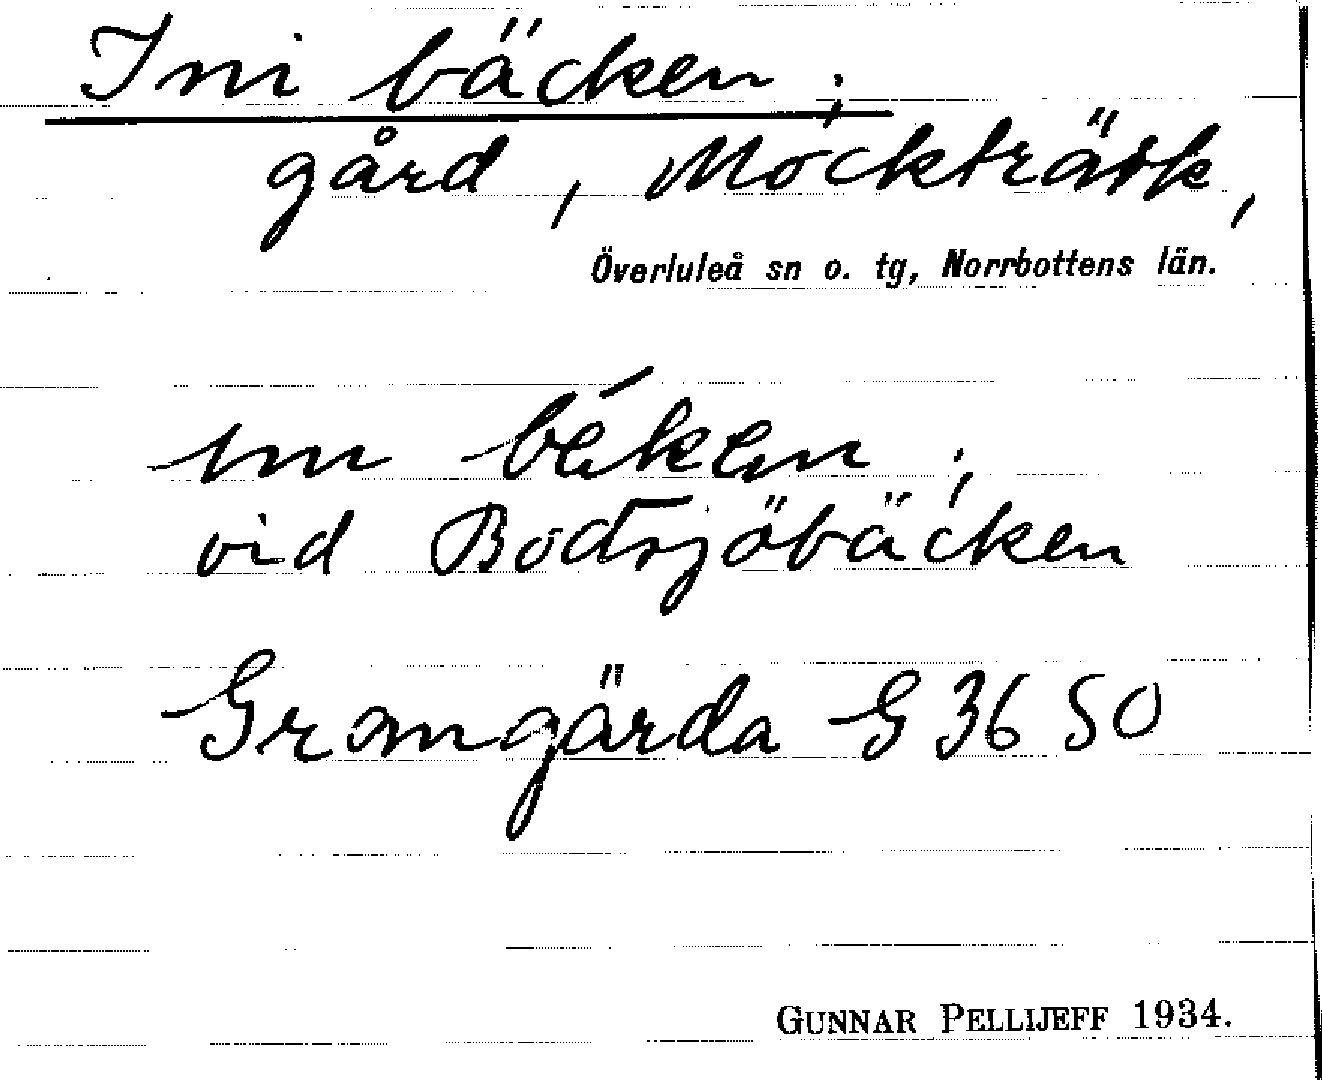 Ini bäcken ;
gård, Mockträsk,
Överluleå sn o. tg, Norrbottens län.
vid Bodsjöbäcken
Gromgärda G 3650
GUNNAR PELLIJEFF 1934.